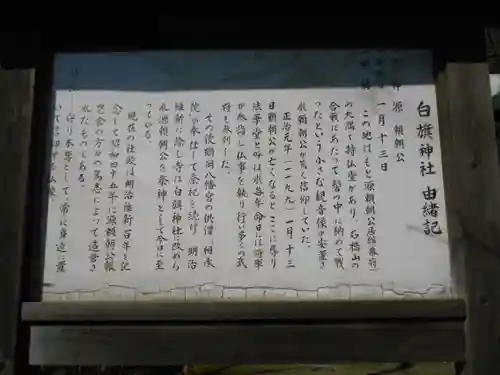 白旗神社 由緒記
神 源 頼朝公
一月十三日
この地はもと源頼朝公居館(幕府)
の北隅で持仏堂があり、石橋山の
合戦にあたって髻の中に納めて戦
ったという小さな観音像が安置さ
れ頼朝公が篤く信仰していた。
正治元年(一一九九)一月十三
日頼朝公が亡くなるとここに葬り
法華堂と呼ばれ毎年命日には将軍
が参詣し仏事を執り行い多くの武
将も参列した。
その後鶴岡八幡宮の供僧(相承
院)が奉仕して祭祀を続け、明治
維新に際し寺は白旗神社に改めら
れ源頼朝公を祭神として今日に至
っている。
現在の社殿は明治維新百年を記
念して昭和四十五年に源頼朝公報
恩会の方々の篤志によって造営さ
れたものである。
守り本尊として、常に身辺に置